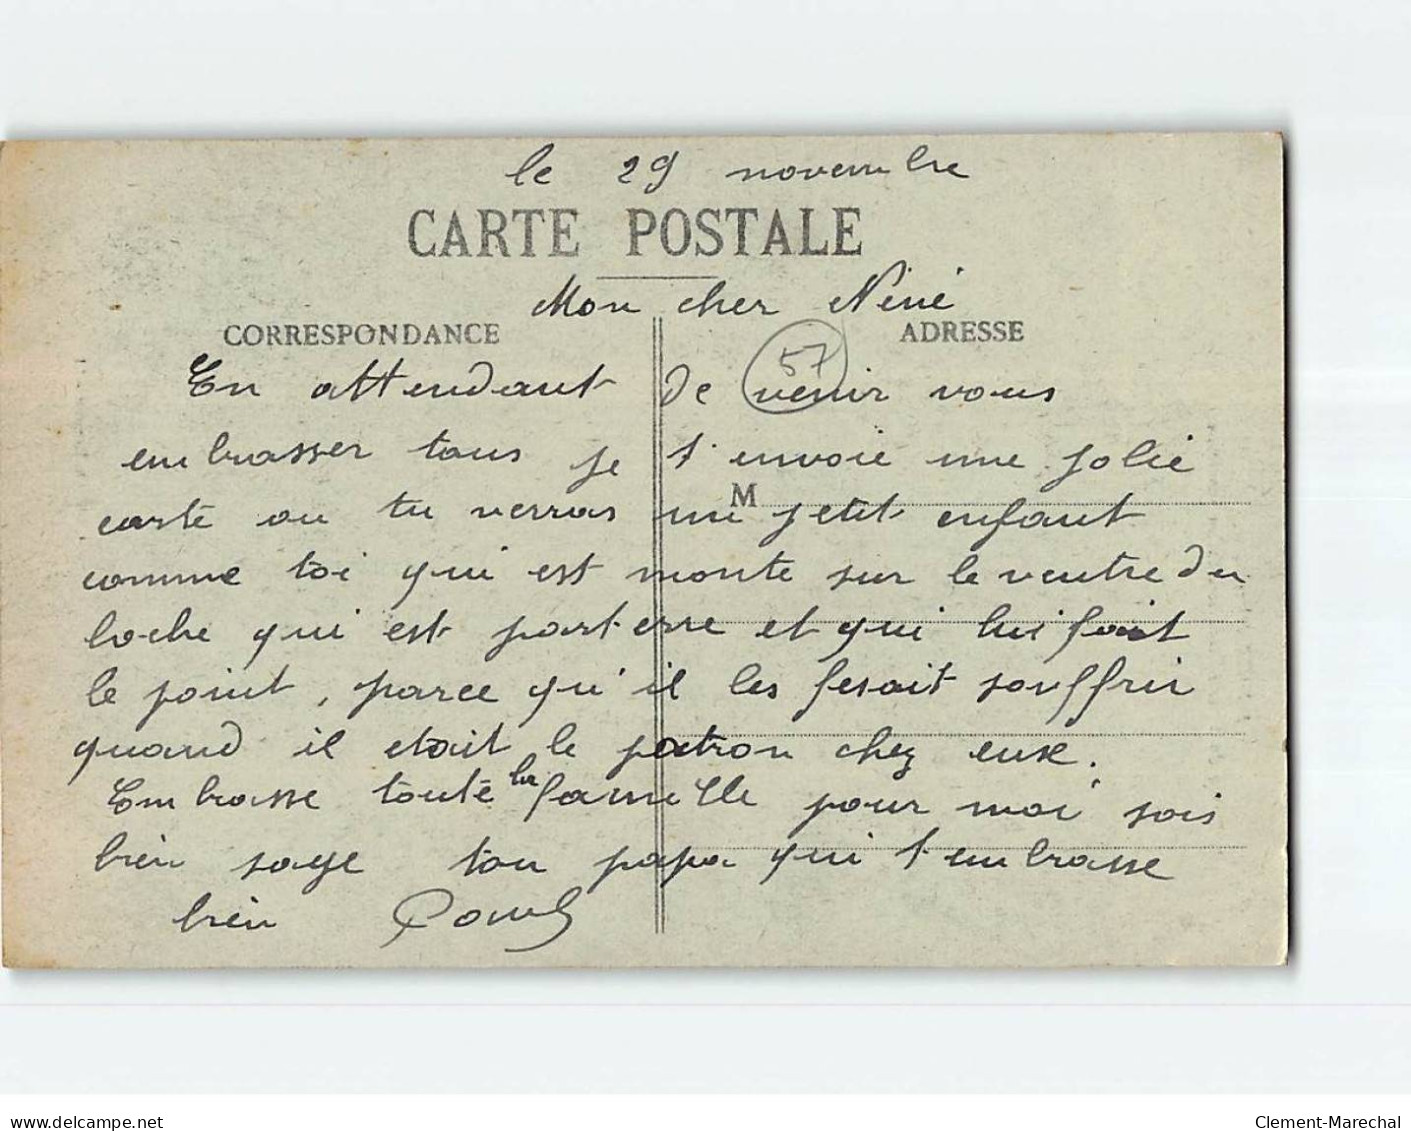 le 29 novembre
CARTE POSTALE
Mon cher Néné
CORRESPONDANCE
ADRESSE
57
En attendant de venir vous
embrasser tous je t'envoie une jolie
M
carte ou tu verras un petit enfant
comme toi qui est monte sur le ventre du
boche qui est parterre et qui lui fait
le point, parce qu'il les fesait souffrir
quand il etait le patron chez eux.
Embrasse toute la famille pour moi sois
bien sage ton papa qui t'embrasse
bien
delcampe.net
Clement-Marechal